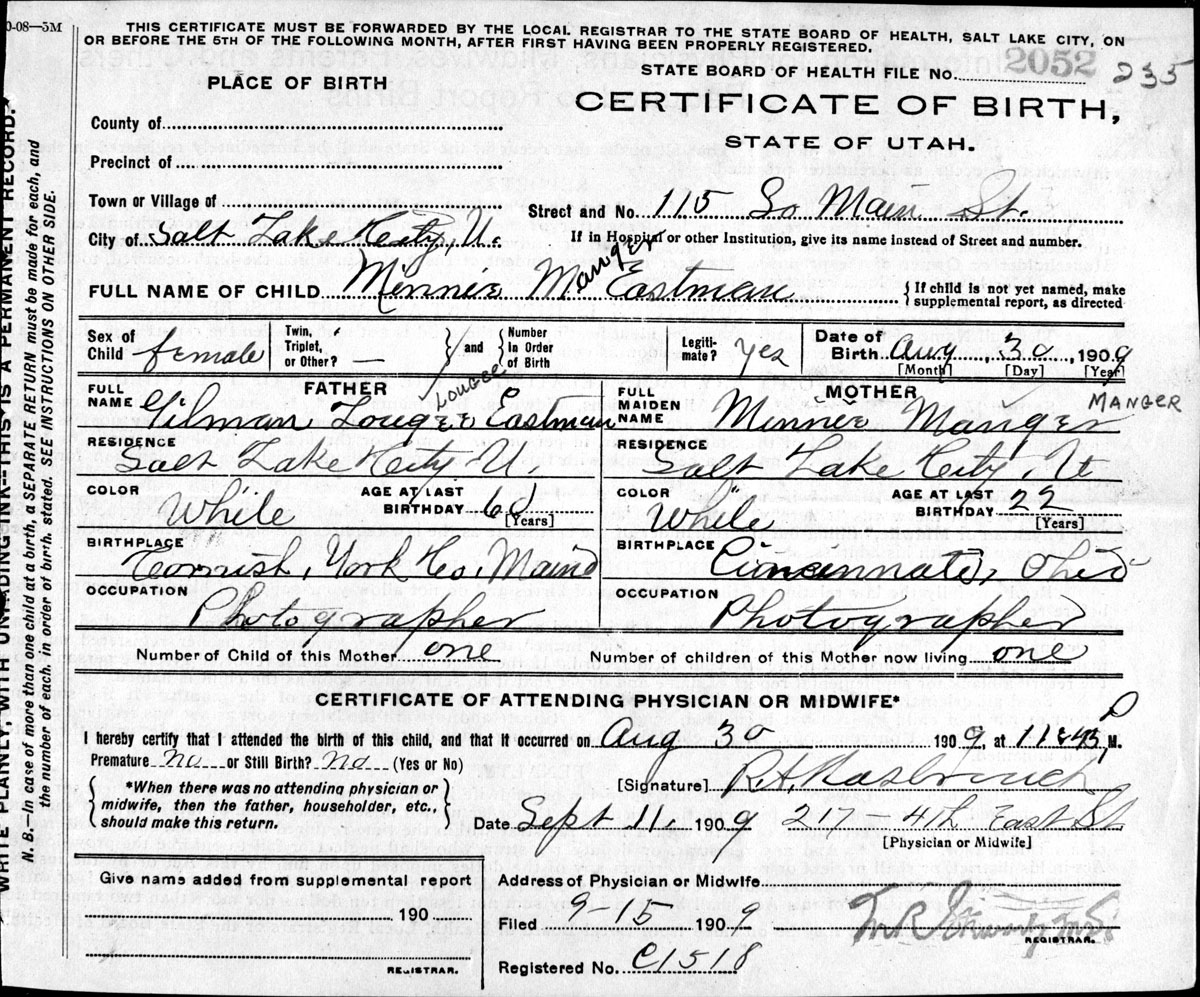 0-08—5M
THIS CERTIFICATE MUST BE FORWARDED BY THE LOCAL REGISTRAR TO THE STATE BOARD OF HEALTH, SALT LAKE CITY, ON
OR BEFORE THE 5TH OF THE FOLLOWING MONTH, AFTER FIRST HAVING BEEN PROPERLY REGISTERED.
STATE BOARD OF HEALTH FILE No. 2052 235
PLACE OF BIRTH
CERTIFICATE OF BIRTH,
STATE OF UTAH.
County of
Precinct of
Town or Village of
Street and No. 115 So Main St.
City of Salt Lake City, U.
If in Hospital or other Institution, give its name instead of Street and number.
FULL NAME OF CHILD Minnie Manger Eastman
{ If child is not yet named, make
supplemental report, as directed
Sex of Child female
Twin, Triplet, or Other? —
} and { Number In Order of Birth
Legitimate? Yes
Date of Birth Aug, 30, 1909
[Month] [Day] [Year]
FATHER
LOUGEE
FULL NAME Gilman Lougee Eastman
MOTHER
FULL MAIDEN NAME Minnie Manger
MANGER
RESIDENCE Salt Lake City U.
RESIDENCE Salt Lake City, Ut
COLOR White
AGE AT LAST BIRTHDAY [Years]
COLOR White
AGE AT LAST BIRTHDAY 22 [Years]
BIRTHPLACE Cornish, York Co, Maine
BIRTHPLACE Cincinnati, Ohio
OCCUPATION Photographer
OCCUPATION Photographer
Number of Child of this Mother one
Number of children of this Mother now living one
CERTIFICATE OF ATTENDING PHYSICIAN OR MIDWIFE*
I hereby certify that I attended the birth of this child, and that it occurred on Aug 30 1909, at 11:45 P M.
Premature no or Still Birth? No (Yes or No)
{ *When there was no attending physician or
midwife, then the father, householder, etc.,
should make this return. }
[Signature] R.H.
Date Sept 11, 1909 217 – 4th East St
[Physician or Midwife]
Give name added from supplemental report
190
REGISTRAR.
Address of Physician or Midwife
Filed 9-15 1909
REGISTRAR.
Registered No. C1518
WRITE PLAINLY, WITH UNFADING INK—THIS IS A PERMANENT RECORD.
N. B.—In case of more than one child at a birth, a SEPARATE RETURN must be made for each, and
the number of each, in order of birth, stated. SEE INSTRUCTIONS ON OTHER SIDE.